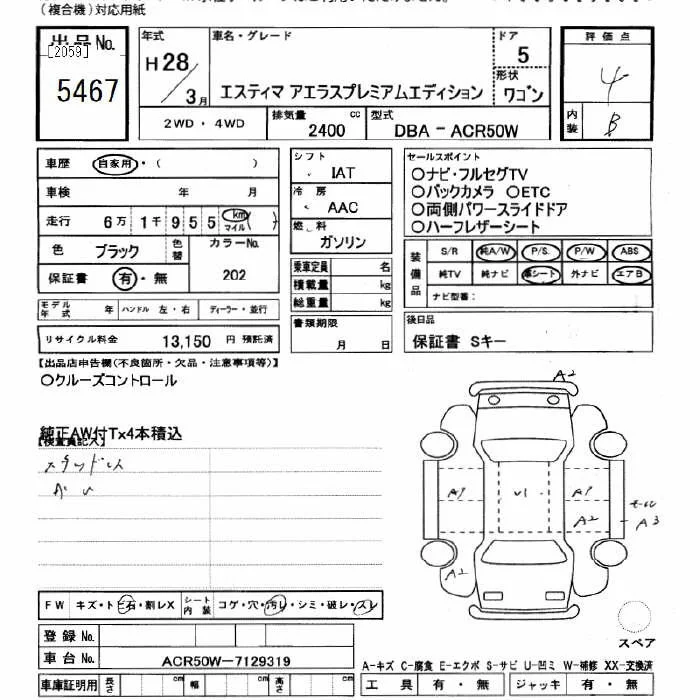 (複合機)対応用紙
出品No.
[2059]
5467
年式
H28
3月
車名・グレード
エスティマ アエラスプレミアムエディション
ドア
5
形状
ワゴン
2WD・4WD
排気量
2400
cc
型式
DBA-ACR50W
評価点
4
内装
B
車歴 自家用・( )
車検 年 月
走行 6万 1千 9 5 5 km マイル ( )
色 ブラック
色替
カラーNo.
202
保証書 有・無
モデル年式 年 ハンドル 左・右 ディーラー・並行
リサイクル料金 13,150 円 預託済
シフト
IAT
冷房
AAC
燃料
ガソリン
乗車定員 名
積載量 kg
総重量 kg
書類期限
月 日
セールスポイント
○ナビ・フルセグTV
○バックカメラ ○ETC
○両側パワースライドドア
○ハーフレザーシート
装備品
S/R 純A/W P/S P/W ABS
純TV 純ナビ 革シート 外ナビ エアB
ナビ型番:
後日品
保証書 Sキー
【出品店申告欄(不良箇所・欠品・注意事項等)】
○クルーズコントロール
純正AW付Tx4本積込
【検査員記入】
A2
A1
U1
A1
A2
A3
A2
FW キズ・トビ石・割レX
シート内装 コゲ・穴・汚レ・シミ・破レ・スレ
登録No.
車台No. ACR50W-7129319
車庫証明用 長さ cm 幅 cm 高さ cm
スペア
A-キズ C-腐食 E-エクボ S-サビ U-凹ミ W-補修 XX-交換済
工具 有・無 ジャッキ 有・無